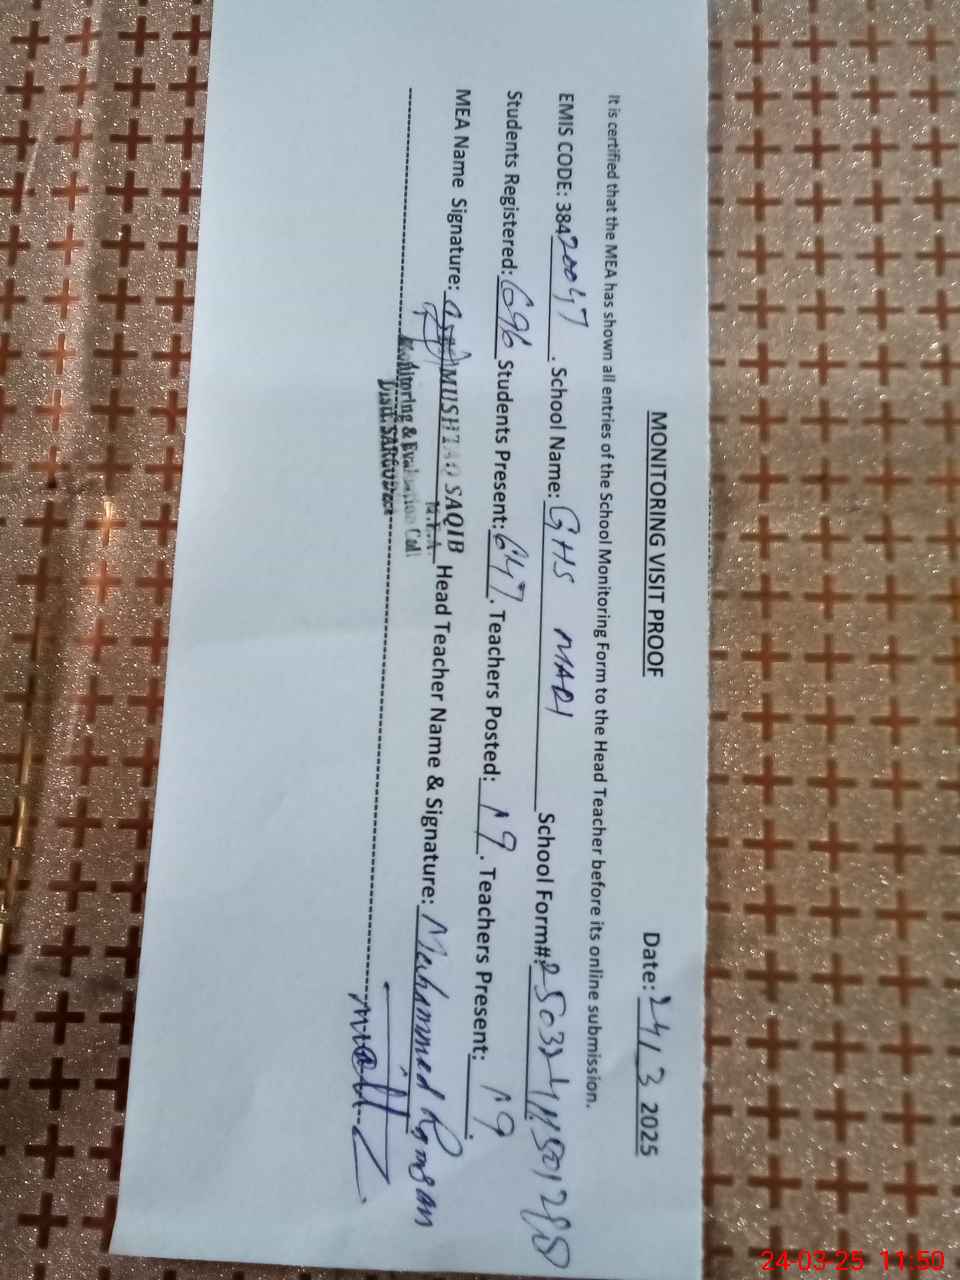 MONITORING VISIT PROOF
Date: 24/3 2025
It is certified that the MEA has shown all entries of the School Monitoring Form to the Head Teacher before its online submission.
EMIS CODE: 38420047. School Name: GHS MARI School Form#:
Students Registered: 696 Students Present: 647. Teachers Posted: 19. Teachers Present: 19.
MEA Name Signature: MUSHTAQ SAQIB Head Teacher Name & Signature: Muhammed Ramzan
M.E.A.
Monitoring & Evaluation Cell
Distt. SARGODHA
24-03-25 11:50